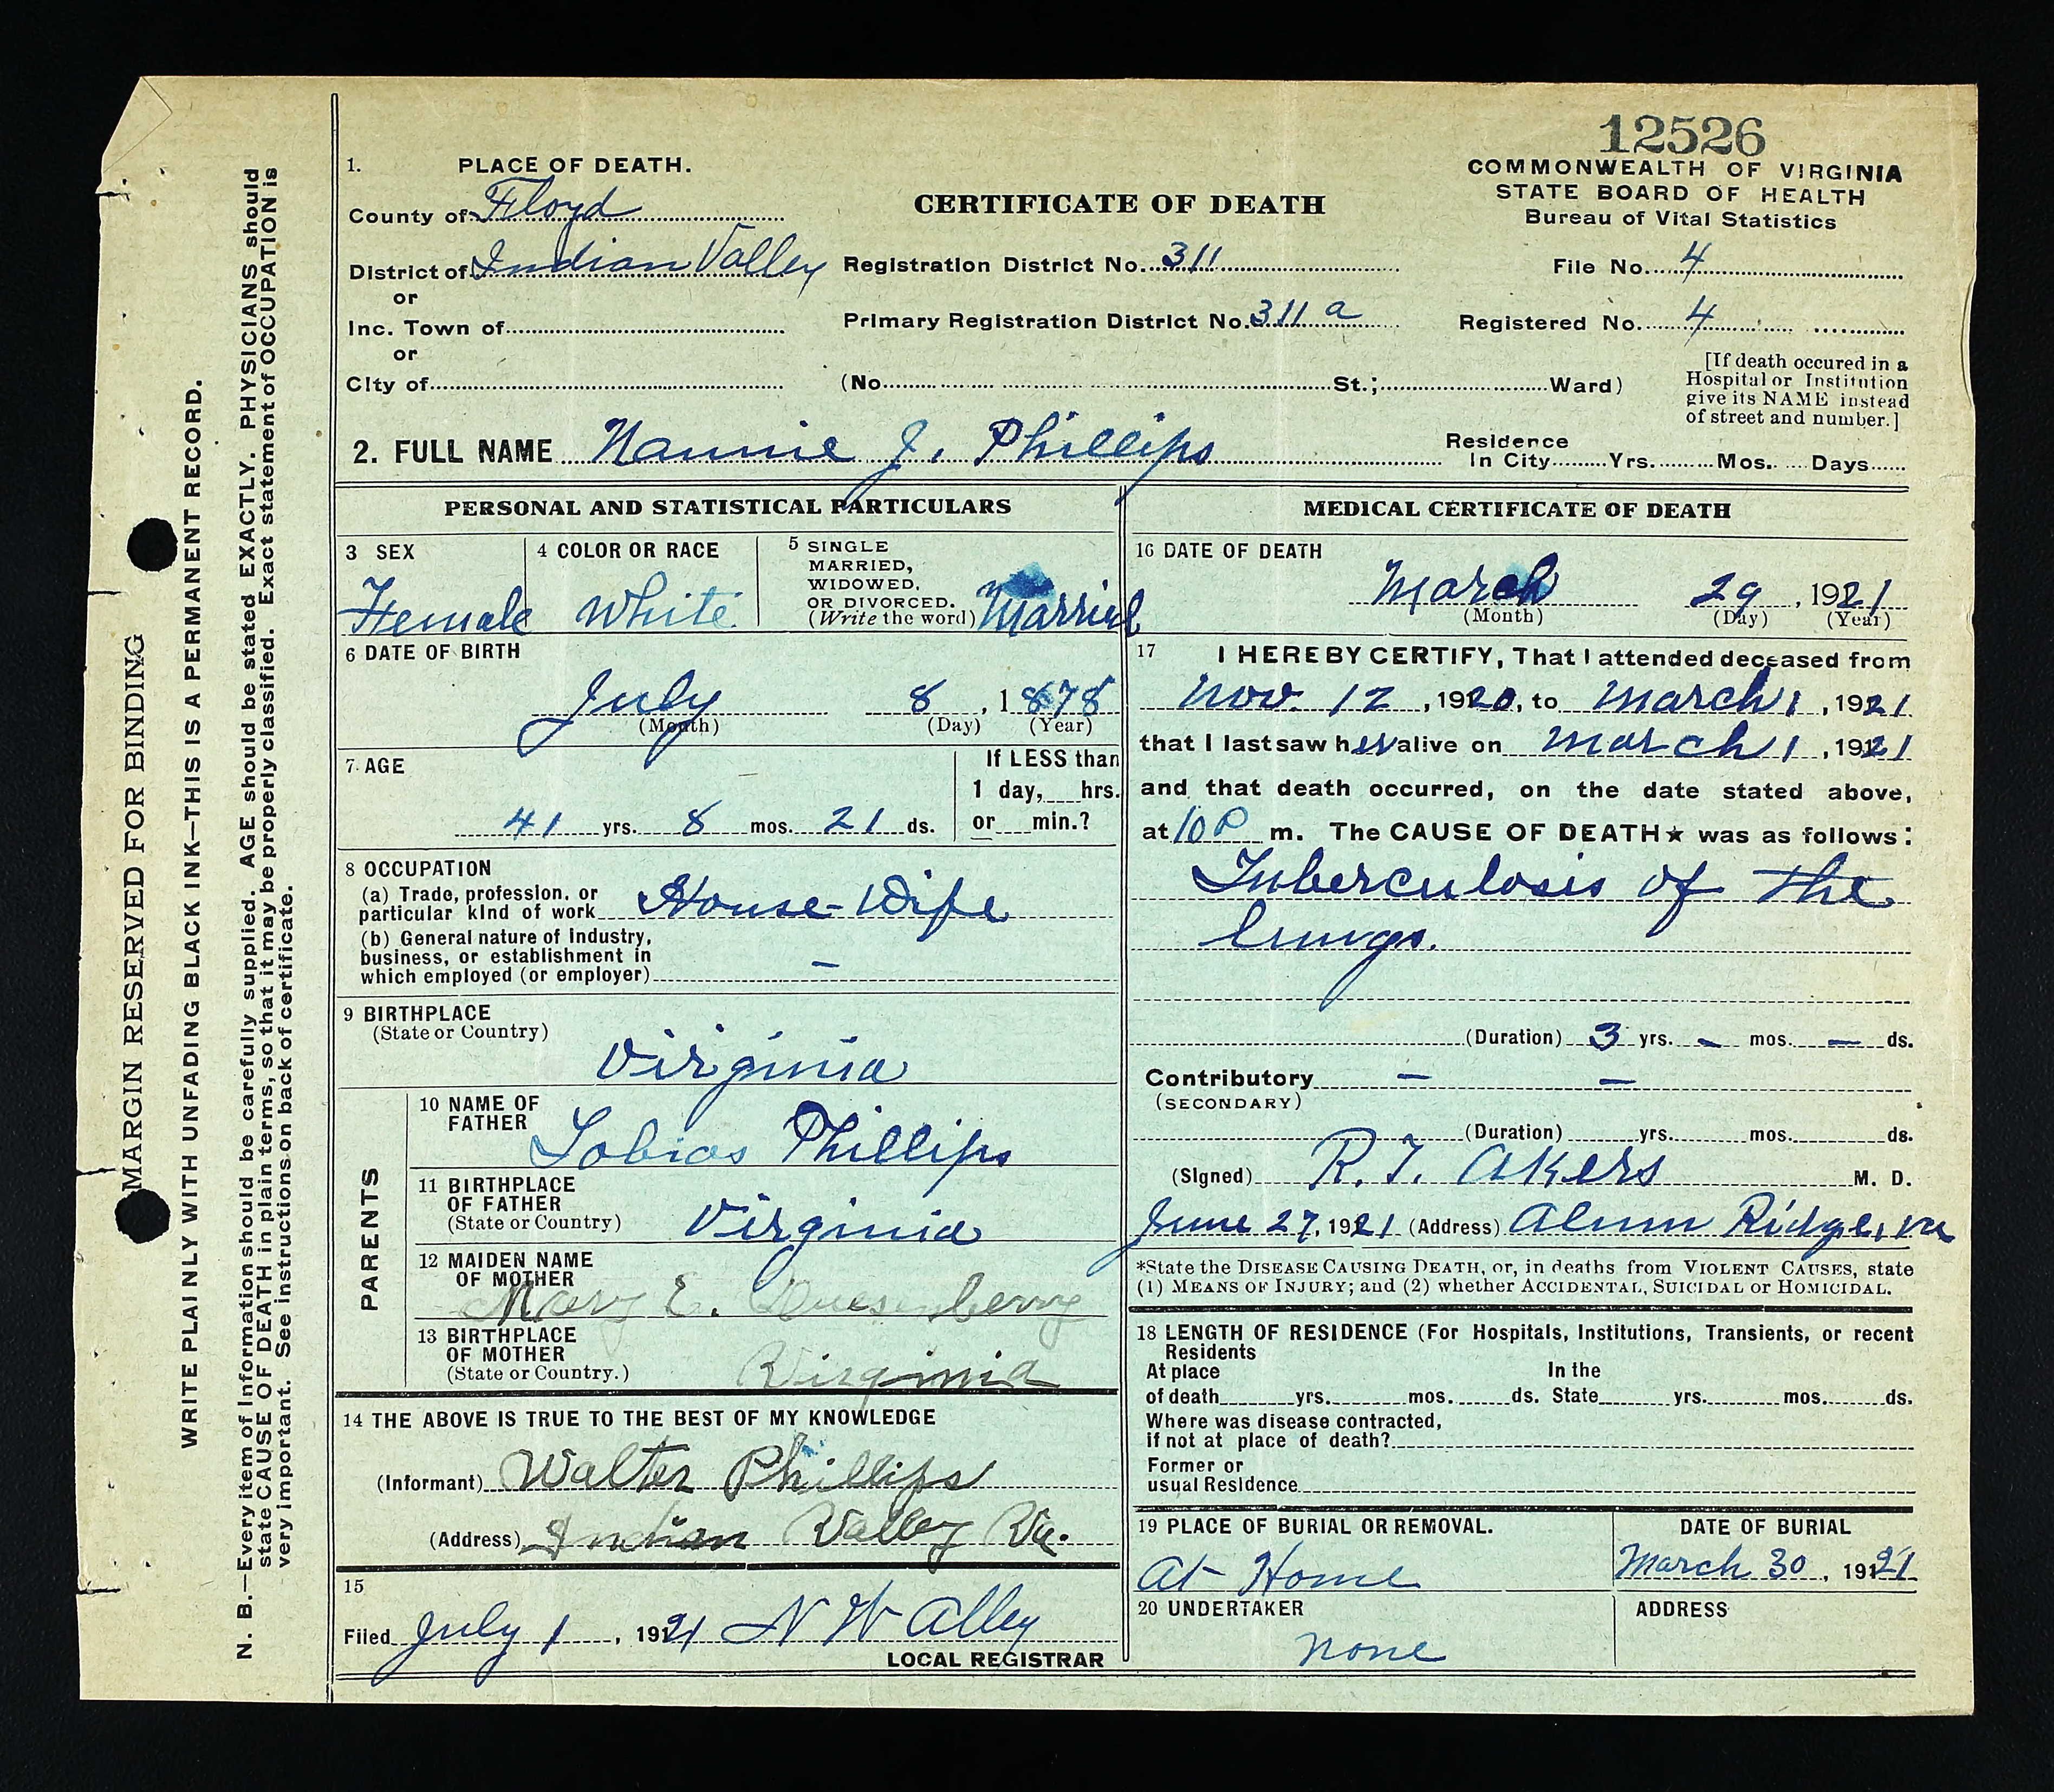 12526
COMMONWEALTH OF VIRGINIA
STATE BOARD OF HEALTH
Bureau of Vital Statistics
1. PLACE OF DEATH.
CERTIFICATE OF DEATH
County of Floyd
District of Indian Valley Registration District No. 311 File No. 4
or
Inc. Town of Primary Registration District No. 311 a Registered No. 4
or
City of (No. St.; Ward)
[If death occured in a
Hospital or Institution
give its NAME instead
of street and number.]
2. FULL NAME Nannie J. Phillips
Residence
In City Yrs. Mos. Days
PERSONAL AND STATISTICAL PARTICULARS
3 SEX
Female
4 COLOR OR RACE
White
5 SINGLE
MARRIED,
WIDOWED,
OR DIVORCED.
(Write the word) Married
6 DATE OF BIRTH
July 8, 1878
(Month) (Day) (Year)
7 AGE
41 yrs. 8 mos. 21 ds.
If LESS than
1 day, hrs.
or min.?
8 OCCUPATION
(a) Trade, profession, or
particular kind of work House-Wife
(b) General nature of Industry,
business, or establishment in
which employed (or employer) –
9 BIRTHPLACE
(State or Country)
Virginia
PARENTS
10 NAME OF
FATHER
Tobias Phillips
11 BIRTHPLACE
OF FATHER
(State or Country) Virginia
12 MAIDEN NAME
OF MOTHER
Mary E. Quesenberry
13 BIRTHPLACE
OF MOTHER
(State or Country.) Virginia
14 THE ABOVE IS TRUE TO THE BEST OF MY KNOWLEDGE
(Informant) Walter Phillips
(Address) Indian Valley Va.
15
Filed July 1, 1921 N W Alley
LOCAL REGISTRAR
MEDICAL CERTIFICATE OF DEATH
16 DATE OF DEATH
March 29, 1921
(Month) (Day) (Year)
17 I HEREBY CERTIFY, That I attended deceased from
Nov. 12, 1920, to March 1, 1921
that I last saw her alive on March 1, 1921
and that death occurred, on the date stated above,
at 10 P m. The CAUSE OF DEATH★ was as follows:
Tuberculosis of the
lungs.
(Duration) 3 yrs. – mos. – ds.
Contributory – –
(SECONDARY)
(Duration) yrs. mos. ds.
(Signed) R. T. Akers M. D.
June 27, 1921 (Address) Alum Ridge, Va
*State the DISEASE CAUSING DEATH, or, in deaths from VIOLENT CAUSES, state
(1) MEANS OF INJURY; and (2) whether ACCIDENTAL, SUICIDAL or HOMICIDAL.
18 LENGTH OF RESIDENCE (For Hospitals, Institutions, Transients, or recent
Residents
At place In the
of death yrs. mos. ds. State yrs. mos. ds.
Where was disease contracted,
if not at place of death?
Former or
usual Residence
19 PLACE OF BURIAL OR REMOVAL.
At Home
DATE OF BURIAL
March 30, 1921
20 UNDERTAKER
none
ADDRESS
MARGIN RESERVED FOR BINDING
WRITE PLAINLY WITH UNFADING BLACK INK—THIS IS A PERMANENT RECORD.
N. B.—Every item of Information should be carefully supplied. AGE should be stated EXACTLY. PHYSICIANS should
state CAUSE OF DEATH in plain terms, so that it may be properly classified. Exact statement of OCCUPATION is
very important. See instructions on back of certificate.